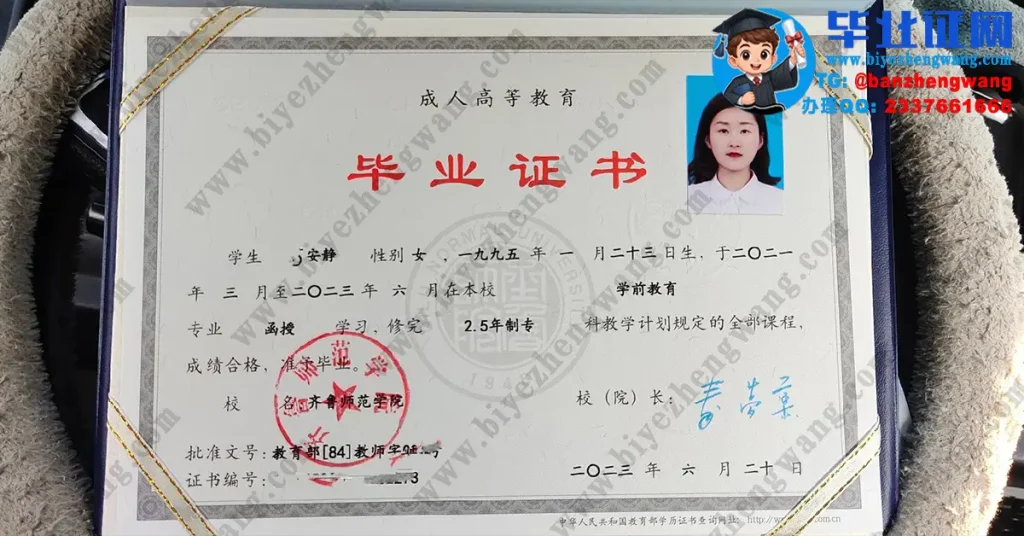 毕业证网
www.biyezhengwang.com
TG: @banzhengwang
办理QQ: 2337661666
成人高等教育
毕业证书
学生 安静 性别 女 ，一九九五 年 一 月 二十三 日生，于二〇二一
年 三 月至二〇二三 年 六 月在本校 学前教育
专业 函授 学习，修完 2.5年制专 科教学计划规定的全部课程，
成绩合格，准予毕业。
校 名 齐鲁师范学院
校（院）长：
批准文号：教育部[84]教师字
证书编号：
二〇二三 年 六 月 二十 日
中华人民共和国教育部学历证书查询网址：
www.biyezhengwang.com